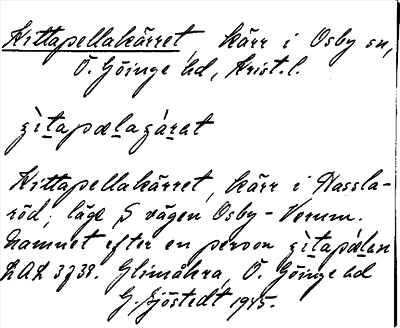 Kittapellakärret, kärr i Osby sn,
Ö. Göinge hd, Krist. l.
gìtapælagǽrat
Kittapellakärret, kärr i Hassla-
röd; läge S vägen Osby - Verum.
Namnet efter en person gìtapǽlan
LAL 3739. Glimåkra, Ö. Göinge hd
G. Sjöstedt 1945.